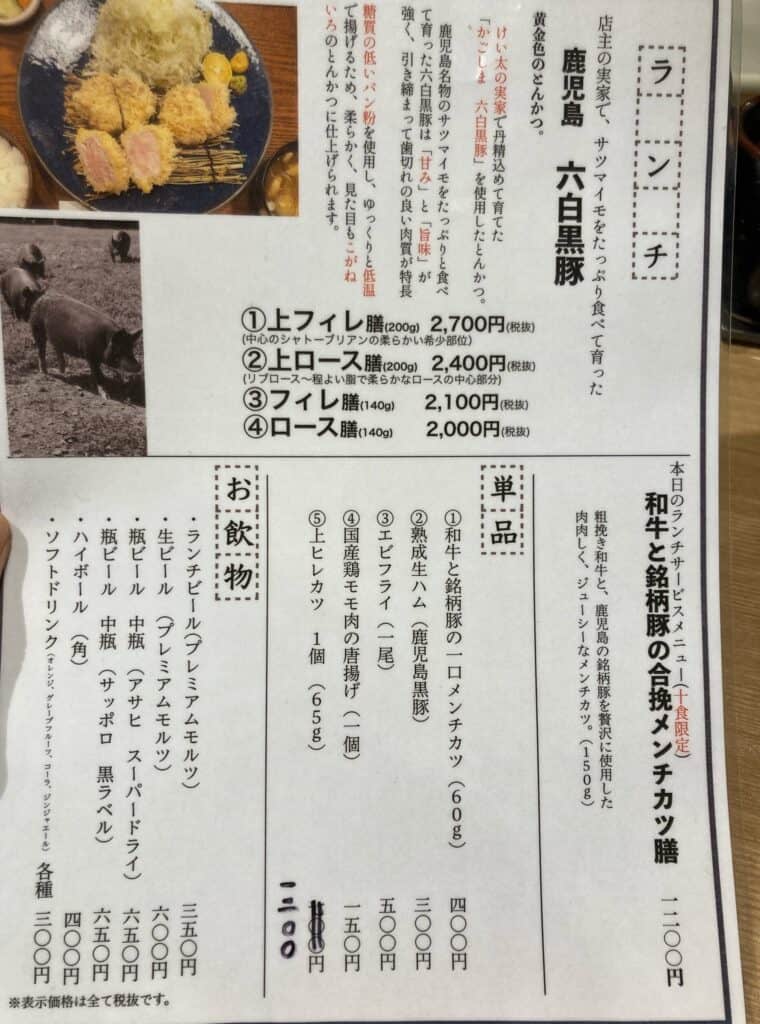 ランチ
店主の実家で、サツマイモをたっぷり食べて育った
鹿児島 六白黒豚
黄金色のとんかつ。
けい太の実家で丹精込めて育てた
「かごしま 六白黒豚」を使用したとんかつ。
鹿児島名物のサツマイモをたっぷりと食べ
て育った六白黒豚は「甘み」と「旨味」が
強く、引き締まって歯切れの良い肉質が特長
糖質の低いパン粉を使用し、ゆっくりと低温
で揚げるため、柔らかく、見た目もこがね
いろのとんかつに仕上げられます。
①上フィレ膳(200g) 2,700円(税抜)
(中心のシャトーブリアンの柔らかい希少部位)
②上ロース膳(200g) 2,400円(税抜)
(リブロース〜程よい脂で柔らかなロースの中心部分)
③フィレ膳(140g) 2,100円(税抜)
④ロース膳(140g) 2,000円(税抜)
本日のランチサービスメニュー(十食限定)
和牛と銘柄豚の合挽メンチカツ膳 一二〇〇円
粗挽き和牛と、鹿児島の銘柄豚を贅沢に使用した
肉肉しく、ジューシーなメンチカツ。(150g)
単品
①和牛と銘柄豚の一口メンチカツ(60g) 四〇〇円
②熟成生ハム(鹿児島黒豚) 三〇〇円
③エビフライ(一尾) 五〇〇円
④国産鶏モモ肉の唐揚げ(一個) 一五〇円
⑤上ヒレカツ 1個 (65g) 円
一二〇〇
お飲物
・ランチビール(プレミアムモルツ) 三五〇円
・生ビール (プレミアムモルツ) 六〇〇円
・瓶ビール 中瓶 (アサヒ スーパードライ) 六五〇円
・瓶ビール 中瓶 (サッポロ 黒ラベル) 六五〇円
・ハイボール (角) 四〇〇円
・ソフトドリンク(オレンジ、グレープフルーツ、コーラ、ジンジャエール) 各種 三〇〇円
※表示価格は全て税抜です。